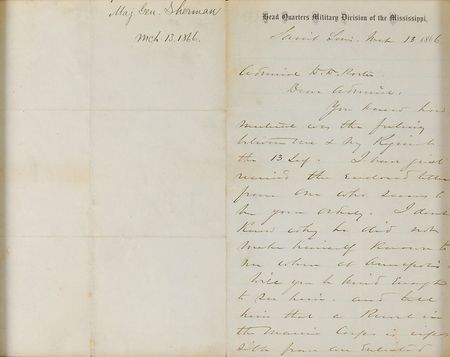 Maj Gen. Sherman
Mch 13, 1866.
Head Quarters Military Division of the Mississippi,
Saint Louis, Mch 13 1866
Admiral D. D. Porter
Dear Admiral.
You know how
mutual was the feeling
between me & my Regiment
the 13 Inf. I have just
received the Enclosed letter
from one who seems to
be your orderly. I dont
know why he did not
make himself Known to
me when at Annapolis.
Will you be kind Enough
to see him. and tell
him that a Recruit in
the Marine Corps is
from an Enlisted